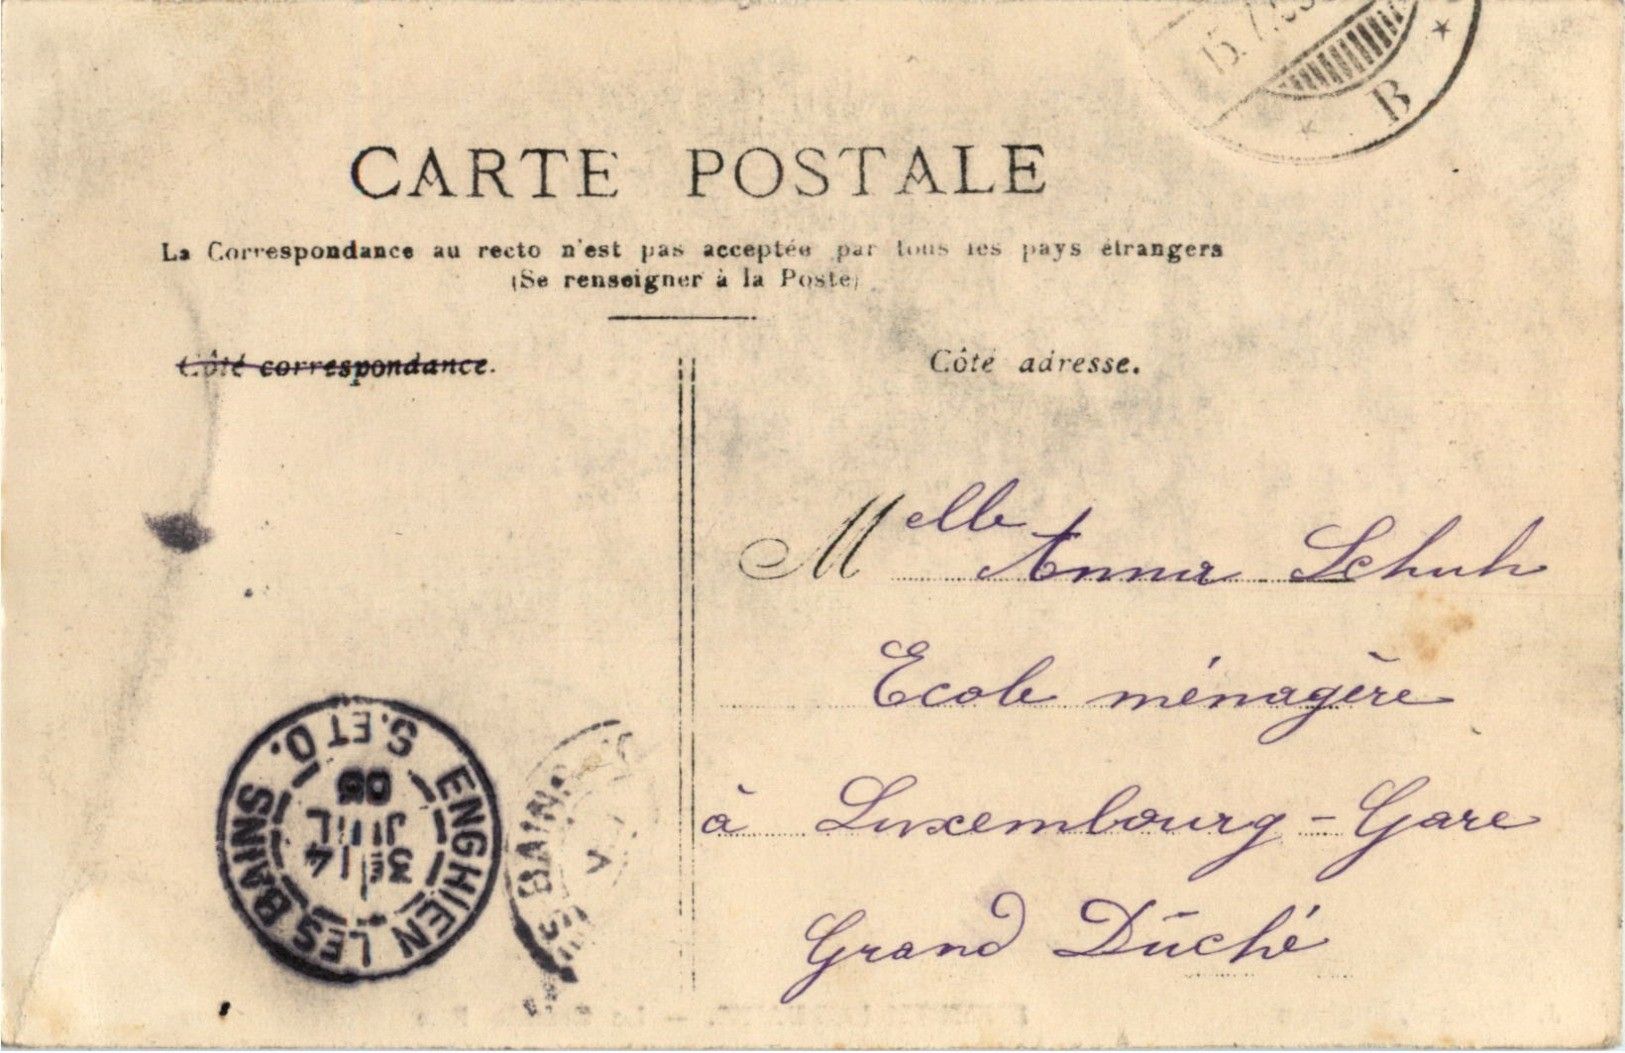 15.7.05
B
CARTE POSTALE
La Correspondance au recto n'est pas acceptée par tous les pays étrangers
(Se renseigner à la Poste)
Côté correspondance.
Côté adresse.
Melle Anna Schuh
Ecole ménagère
à Luxembourg-Gare
Grand Dūché
ENGHIEN LES BAINS
S. ET O.
14
JL
05
BAINS